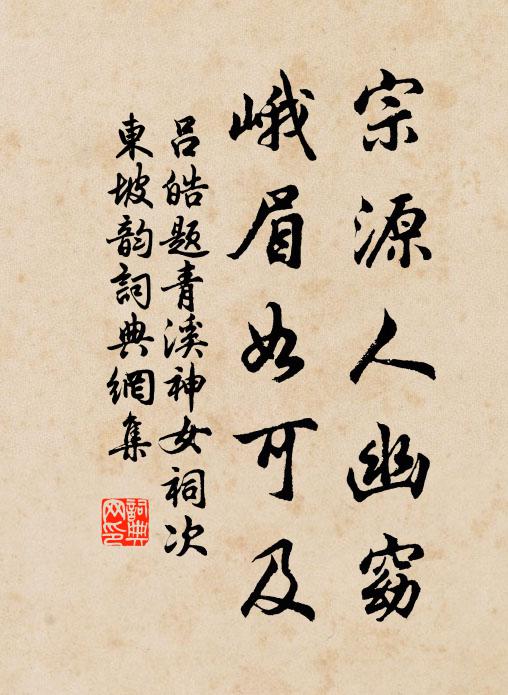 宗源人幽窈
峨眉如可及
吕皓题青溪神女祠次
東坡韵詞典網集
詞典网印